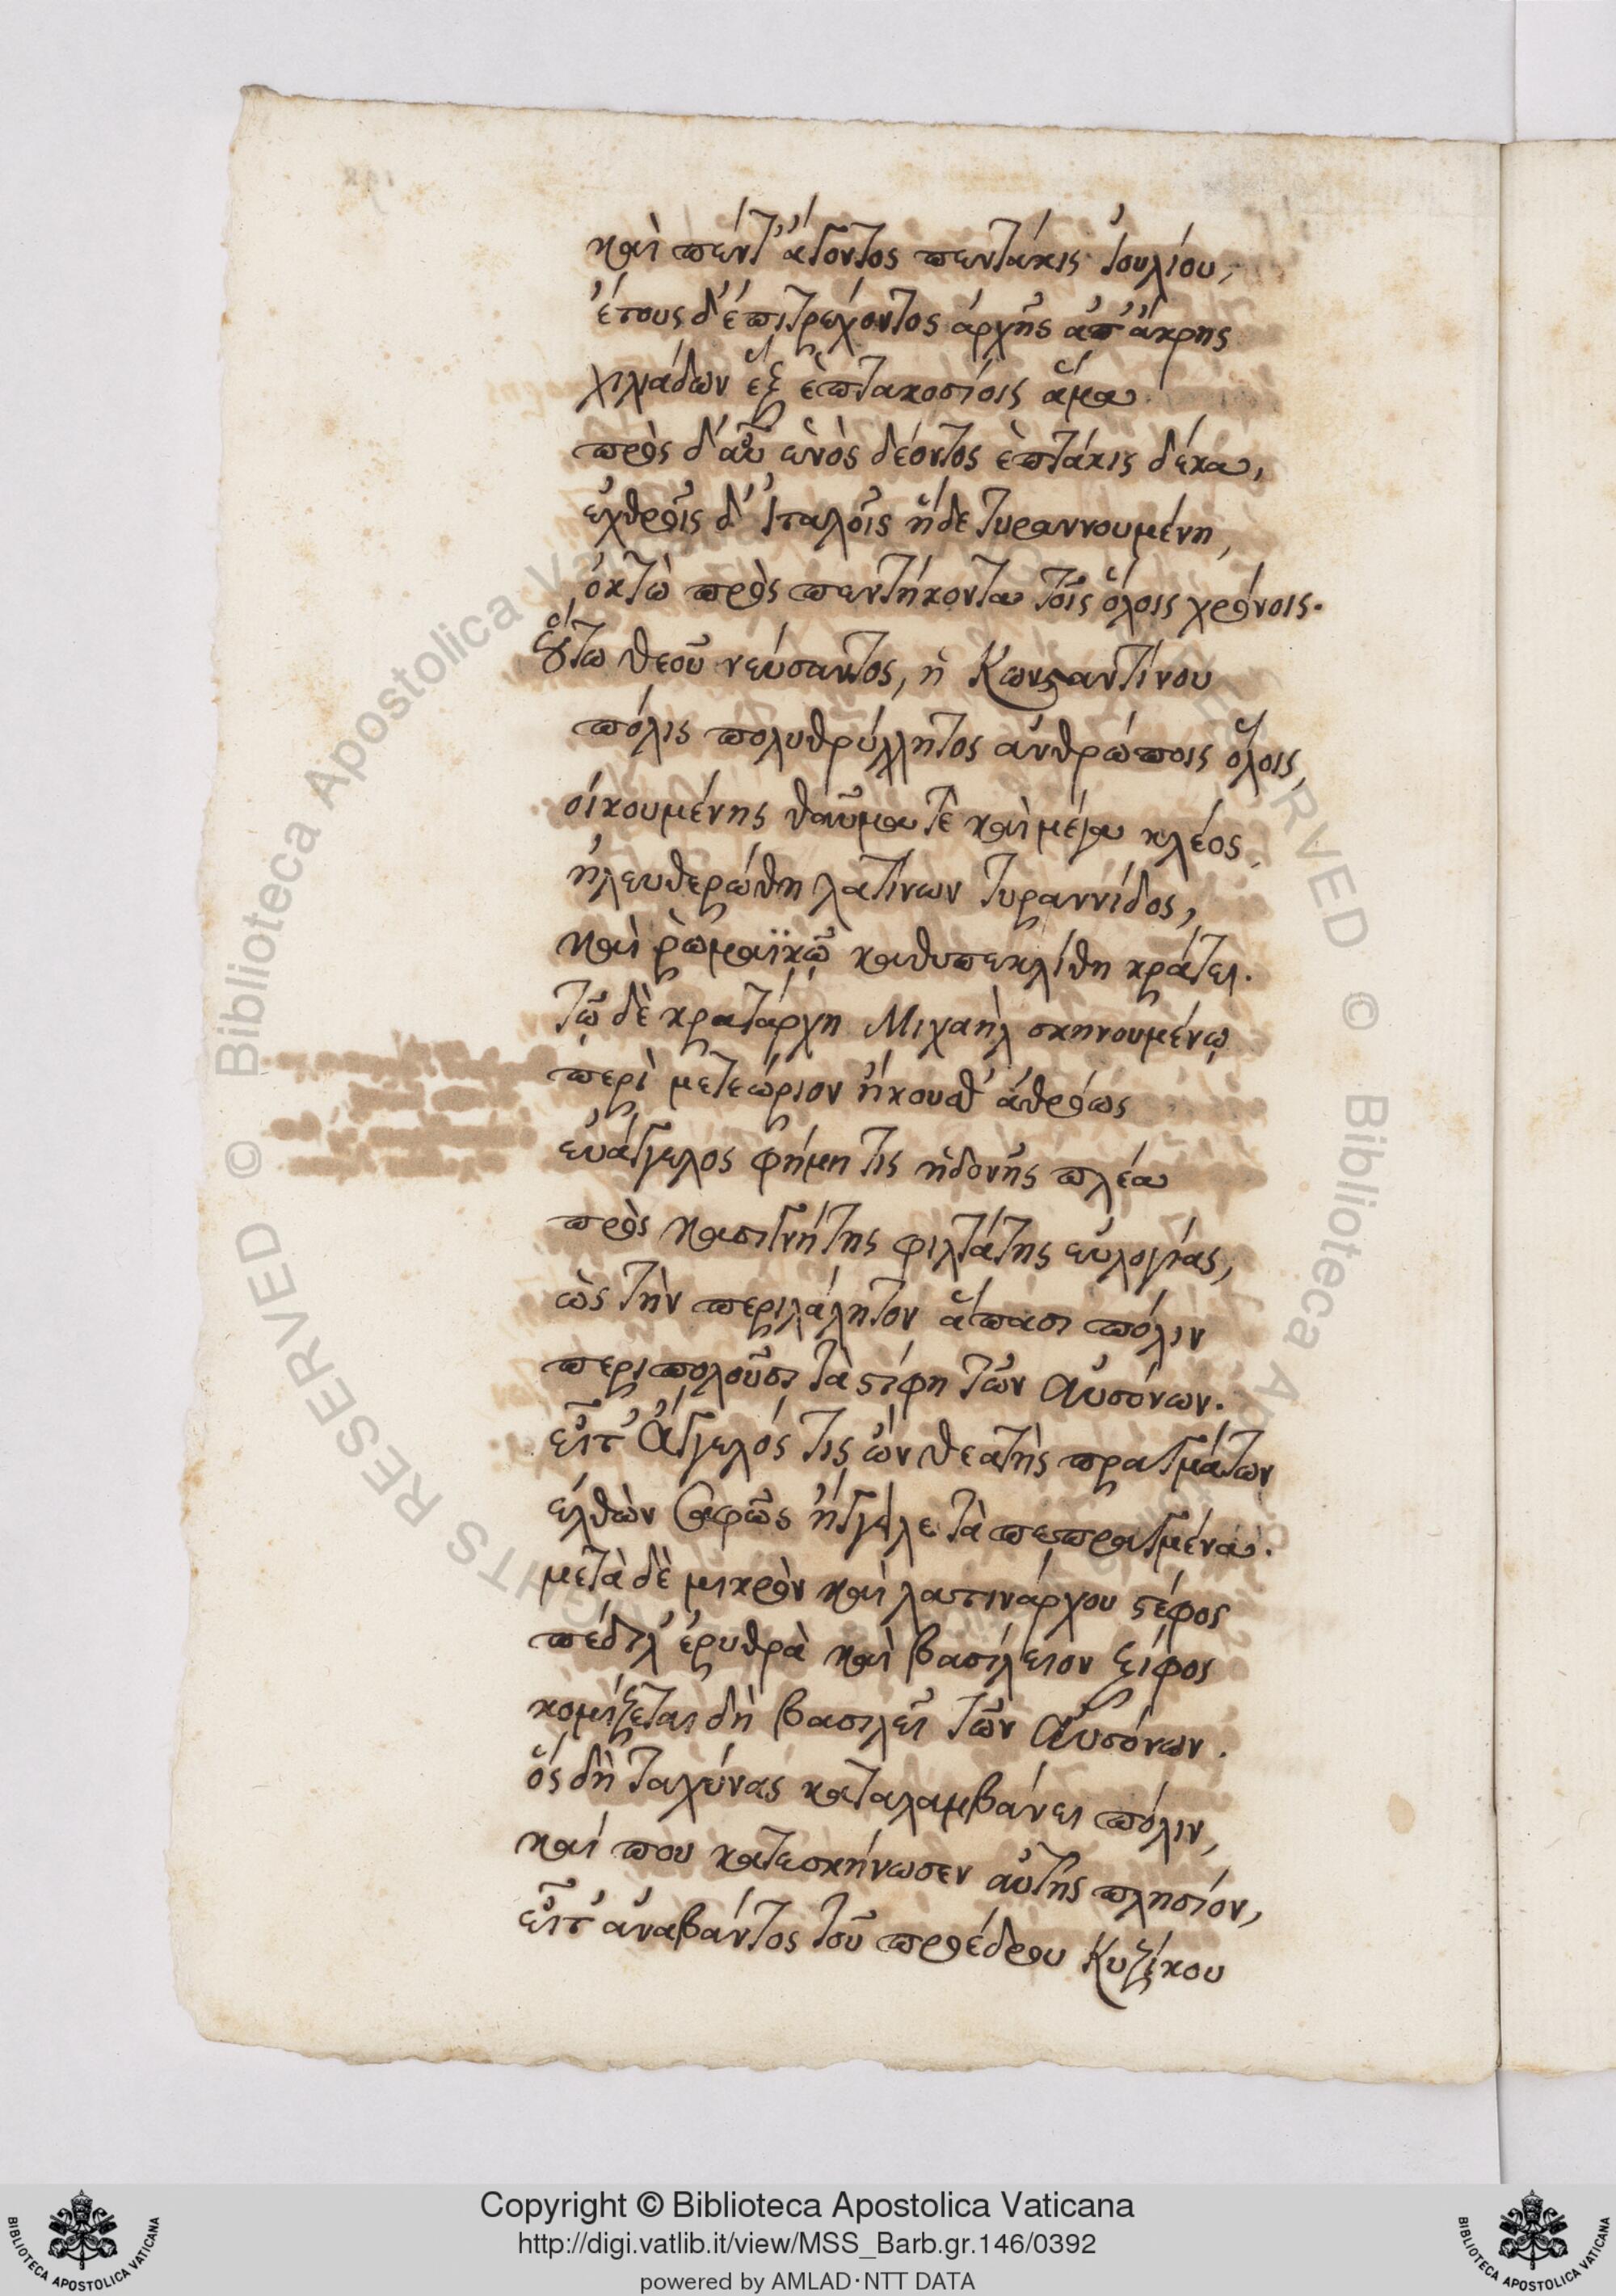 καὶ πέντ' ἄγοντος πεντάκις ἰουλίου,
ἔτους δ' ἐπιτρέχοντος ἀρχῆς ἀπ' ἄκρης
χιλιάδων ἓξ ἑπτακοσίοις ἅμα
πρὸς δ' αὖ ἑνὸς δέοντος ἑπτάκις δέκα,
ἐχθροῖς δ' Ἰταλοῖς ἥδε τυραννουμένη,
ὀκτὼ πρὸς πεντήκοντα τοῖς ὅλοις χρόνοις.
Οὕτω θεοῦ νεύσαντος, ἡ Κωνσταντίνου
πόλις πολυθρύλλητος ἀνθρώποις ὅλοις,
οἰκουμένης θαῦμα τὲ καὶ μέγα κλέος,
ἠλευθερώθη λατίνων τυραννίδος,
καὶ ῥωμαϊκῷ καθυπεκλίθη κράτει.
τῷ δὲ κρατάρχῃ Μιχαὴλ σκηνουμένῳ
περὶ μετεώριον ἠκούσθ' ἀθρόως
εὐάγγελος φήμη τις ἡδονῆς πλέα
πρὸς κασιγνήτης φιλτάτης εὐλογίας,
ὡς τὴν περιλάλητον ἅπασι πόλιν
περιπολοῦσι τὰ στίφη τῶν Αὐσόνων.
εἶτ' Ἄγγελός τις ὢν θεατὴς πραγμάτων
ἐλθὼν σαφῶς ἤγγειλε τὰ πεπραγμένα.
μετὰ δὲ μικρὸν καὶ λατινάρχου στέφος
πέδιλ' ἐρυθρὰ καὶ βασίλειον ξίφος
κομίζεται δὴ βασιλεῖ τῶν Αὐσόνων.
ὃς δὴ ταχύνας καταλαμβάνει πόλιν,
καί που κατεσκήνωσεν αὐτῆς πλησίον,
εἶτ' ἀναβάντος τοῦ προέδρου Κυζίκου
Copyright © Biblioteca Apostolica Vaticana
http://digi.vatlib.it/view/MSS_Barb.gr.146/0392
powered by AMLAD·NTT DATA